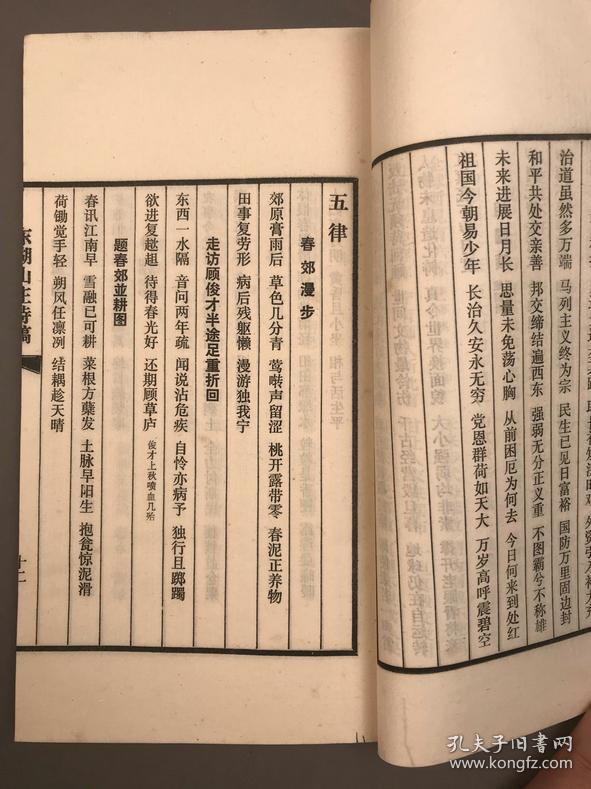 治道虽然多万端 马列主义终为宗 民生已见日富裕 国防万里固边封
和平共处交亲善 邦交缔结遍西东 强弱无分正义重 不图霸兮不称雄
未来进展日月长 思量未免荡心胸 从前困厄为何去 今日何来到处红
祖国今朝易少年 长治久安永无穷 党恩群荷如天大 万岁高呼震碧空
五律
春郊漫步
郊原膏雨后 草色几分青 莺啭声留涩 桃开露带零 春泥正养物
田事复劳形 病后残躯懒 漫游独我宁
走访顾俊才半途足重折回
东西一水隔 音问两年疏 闻说沾危疾 自怜亦病予 独行且踯躅
欲进复趑趄 待得春光好 还期顾草庐 俊才上秋喷血几殆
题春郊並耕图
春讯江南早 雪融已可耕 菜根方蘖发 土脉早阳生 抱瓮惊泥滑
荷锄觉手轻 朔风任凛冽 结耦趁天晴
东湖山庄诗稿
十二
孔夫子旧书网
www.kongfz.com